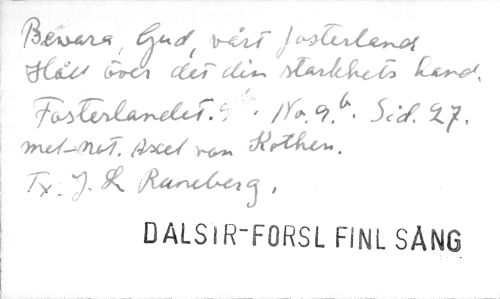 Bevara, Gud, vårt fosterland
Håll över det din starkhets hand.
Fosterlandet. No. 9.b Sid. 27.
mel-not. Axel von Kothen.
Tx. J. L Runeberg.
DALSIR-FORSL FINL SÅNG